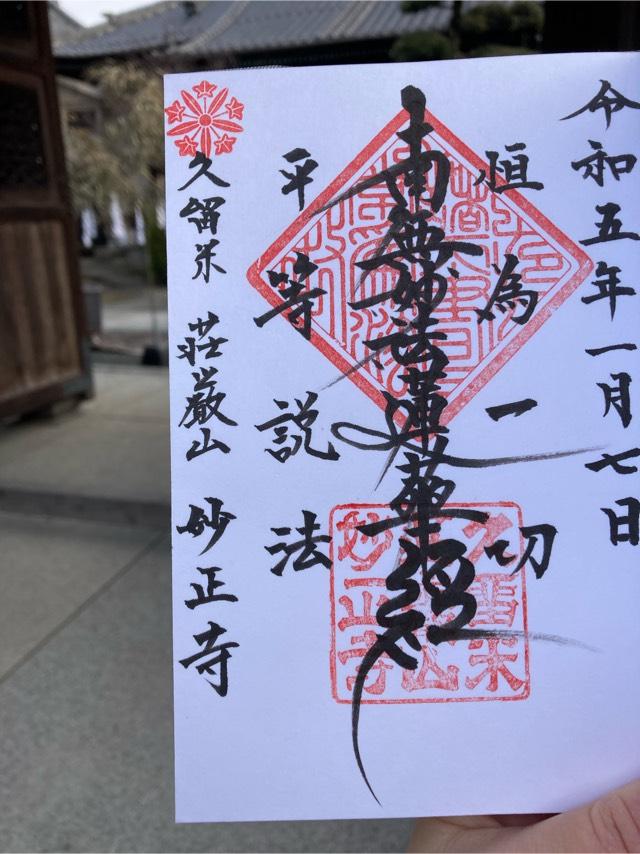 令和五年一月七日
恒為一切
南無妙法蓮華経
平等説法
久留米 荘厳山 妙正寺
久留米
山
妙正寺